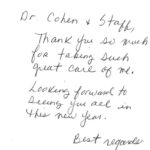 Dr Cohen & Staff,
Thank you so much
for taking such
great care of me.
Looking forward to
seeing you all in
this new year.
Best regards